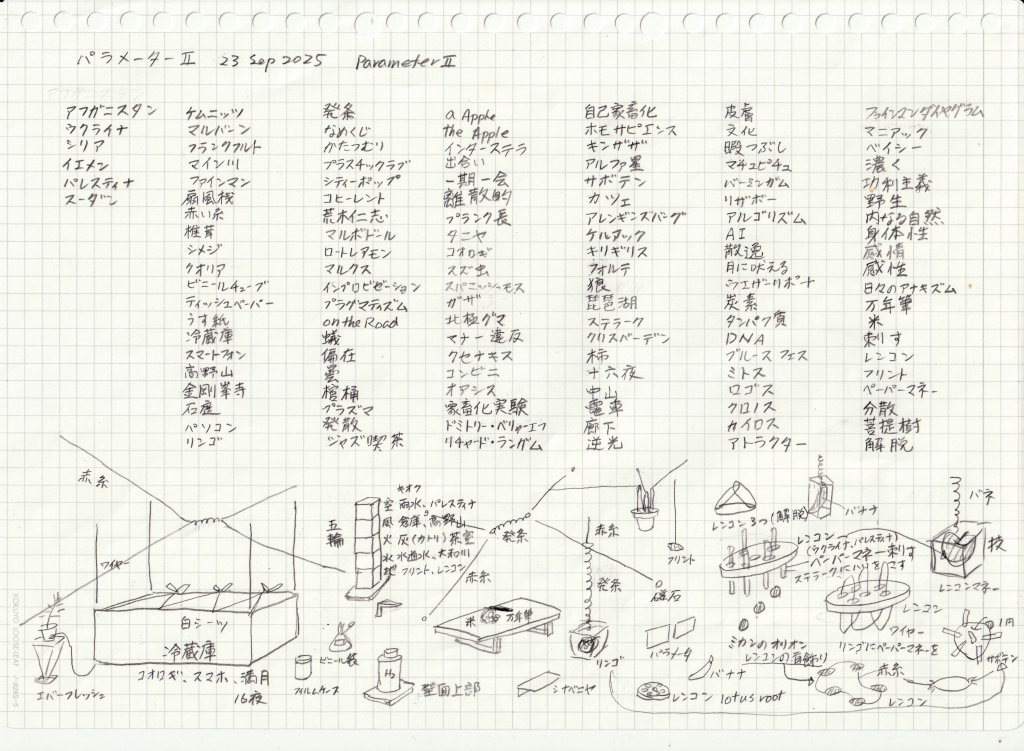 パラメーターⅡ 23 Sep 2025 Parameter Ⅱ
アフガニスタン
ウクライナ
シリア
イエメン
パレスティナ
スーダン
ケムニッツ
マルバーン
フランクフルト
マイン川
ファインマン
扇風機
赤い糸
椎茸
シメジ
クオリア
ビニールチューブ
ティッシュペーパー
うす紙
冷蔵庫
スマートフォン
高野山
金剛峯寺
石庭
パソコン
リンゴ
発条
なめくじ
かたつむり
プラスチックラブ
シティーポップ
コヒーレント
荒木仁志
マルボドール
ロートレアモン
マルクス
インプロビゼーション
プラグマティズム
on the Road
蟻
偏在
曇
棺桶
プラズマ
発散
ジャズ喫茶
a Apple
the Apple
インターステラ
出合い
一期一会
離散的
プランク長
タニヤ
コオロギ
スズ虫
スパニッシュモス
ガザ
北極グマ
マナー違反
クセナキス
コンビニ
オアシス
家畜化実験
ドミトリー・ベリャーエフ
リチャード・ランガム
自己家畜化
ホモサピエンス
キンザザ
アルファ星
サボテン
カツェ
アレンギンズバーグ
ケルアック
キリギリス
フォルテ
狼
琵琶湖
ステラーク
クリスバーデン
柿
十六夜
中山
電車
廊下
逆光
皮膚
文化
暇つぶし
マチュピチュ
バーミンガム
リザボー
アルゴリズム
AI
散逸
月に吠える
ウェザーリポート
炭素
タンパク質
DNA
ブルースフェス
ミトス
ロゴス
クロノス
カイロス
アトラクター
ファインマンダイヤグラム
マニアック
ベイシー
濃く
功利主義
野生
内なる自然
身体性
感情
感性
日々のアナキズム
万年筆
米
刺す
レンコン
フリント
ペーパーマネー
分散
菩提樹
解脱
赤糸
ワイヤー
白シーツ
冷蔵庫
コオロギ、スマホ、満月
16夜
エバーフレッシュ
五輪
キオク
空 雨水、パレスティナ
風 倉庫、高野山
火 灰(カトリ)茶室
水 水道水、大和川
地 フリント、レンコン
ビニール袋
フィルムケース
H₂
壁面上部
発条
赤糸
米
万年筆
シナベニヤ
フリント
赤糸
発条
磁石
リンゴ
パラメータ
バナナ
レンコン lotus root
レンコン3つ(解脱)
バナナ
レンコン
(ウクライナ、パレスティナ)
ペーパーマネー刺す
ステラークにハリをさす
ミカンのオリオン
レンコンの首飾り
レンコン
ワイヤー
リンゴにペーパーマネーを
赤糸
レンコン
バネ
枝
レンコンマネー
1円
サボテン
KOKUYO LOOSE-LEAF